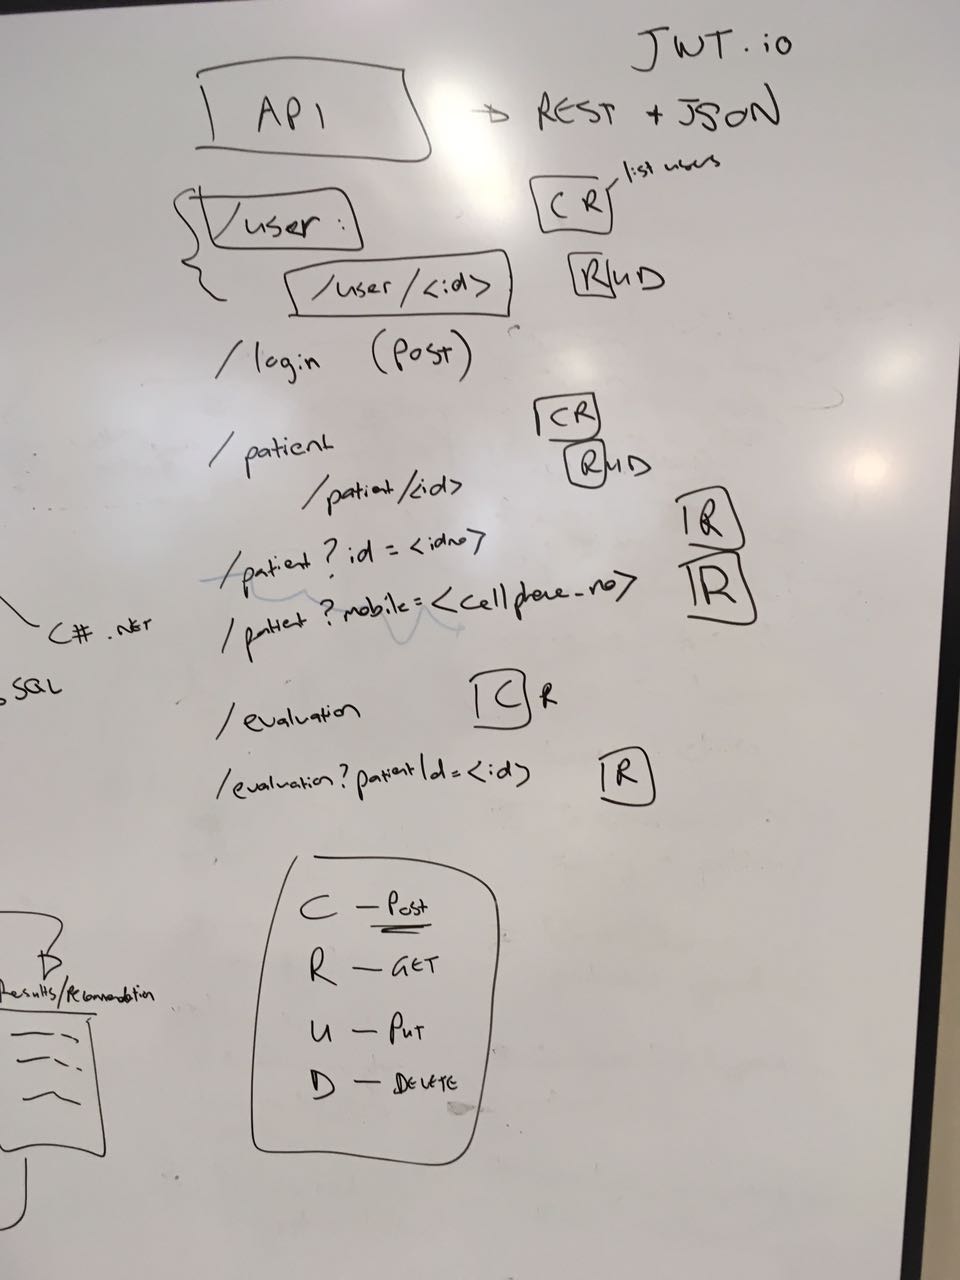 JWT.io
API → REST + JSON
/user : CR list users
/user/<id> RUD
/login (Post)
/patient CR
/patient/<id> RUD
/patient?id=<idno> R
/patient?mobile=<cellphone_no> R
C# .NET
SQL
/evaluation CR
/evaluation?patientId=<id> R
C — Post
R — GET
U — PUT
D — DELETE
Results/Recommendation